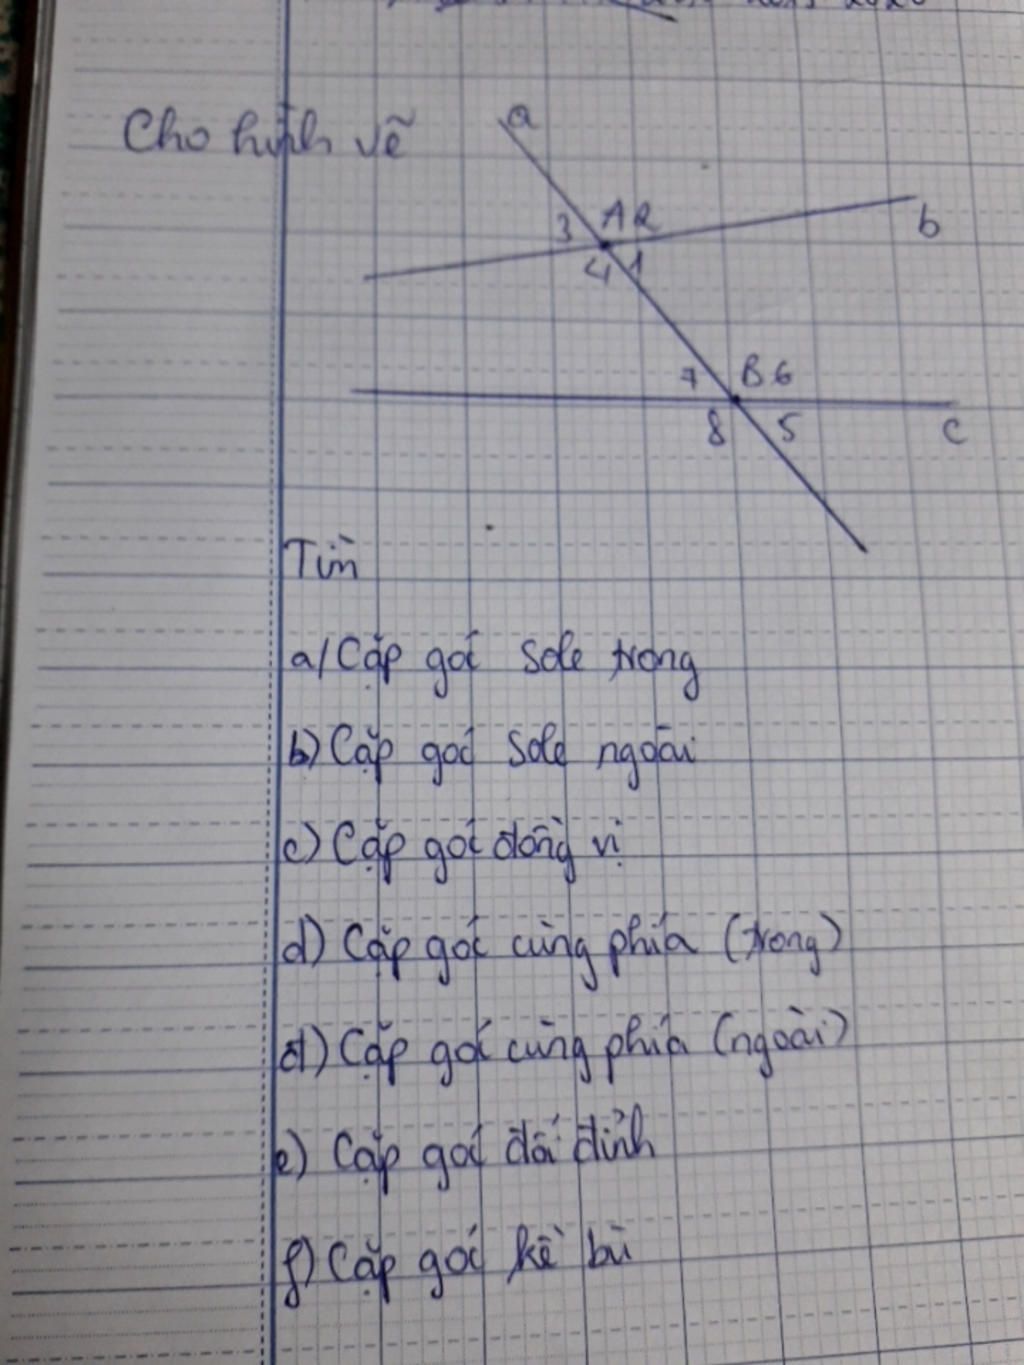 Cho hình vẽ
a
3 A 2
b
4 1
7 B 6
8 5 c
Tìm
a/ Cặp góc sole trong
b) Cặp góc sole ngoài
c) Cặp góc đồng vị
d) Cặp góc cùng phía (trong)
đ) Cặp góc cùng phía (ngoài)
e) Cặp góc đối đỉnh
f) Cặp góc kề bù